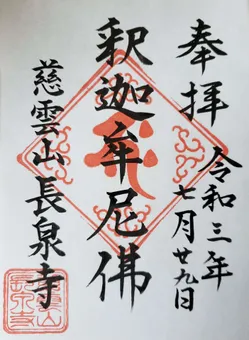 奉拝
令和三年
七月廿九日
釈迦牟尼佛
慈雲山長泉寺